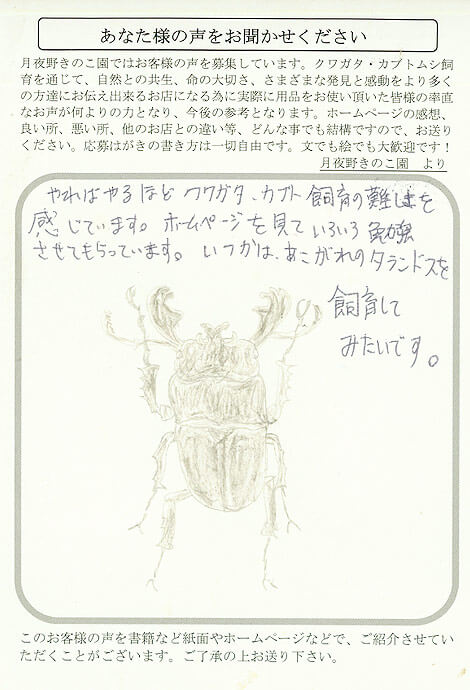 あなた様の声をお聞かせください
月夜野きのこ園ではお客様の声を募集しています。クワガタ・カブトムシ飼
育を通じて、自然との共生、命の大切さ、さまざまな発見と感動をより多く
の方達にお伝え出来るお店になる為に実際に用品をお使い頂いた皆様の率直
なお声が何よりの力となり、今後の参考となります。ホームページの感想、
良い所、悪い所、他のお店との違い等、どんな事でも結構ですので、お送り
ください。応募はがきの書き方は一切自由です。文でも絵でも大歓迎です！
月夜野きのこ園　より
やればやるほど クワガタ、カブト 飼育の難しさを
感じています。ホームページを見ていろいろ勉強
させてもらっています。いつかは、あこがれのタランドスを
飼育して
みたいです。
このお客様の声を書籍など紙面やホームページなどで、ご紹介させてい
ただくことがございます。ご了承の上お送り下さい。